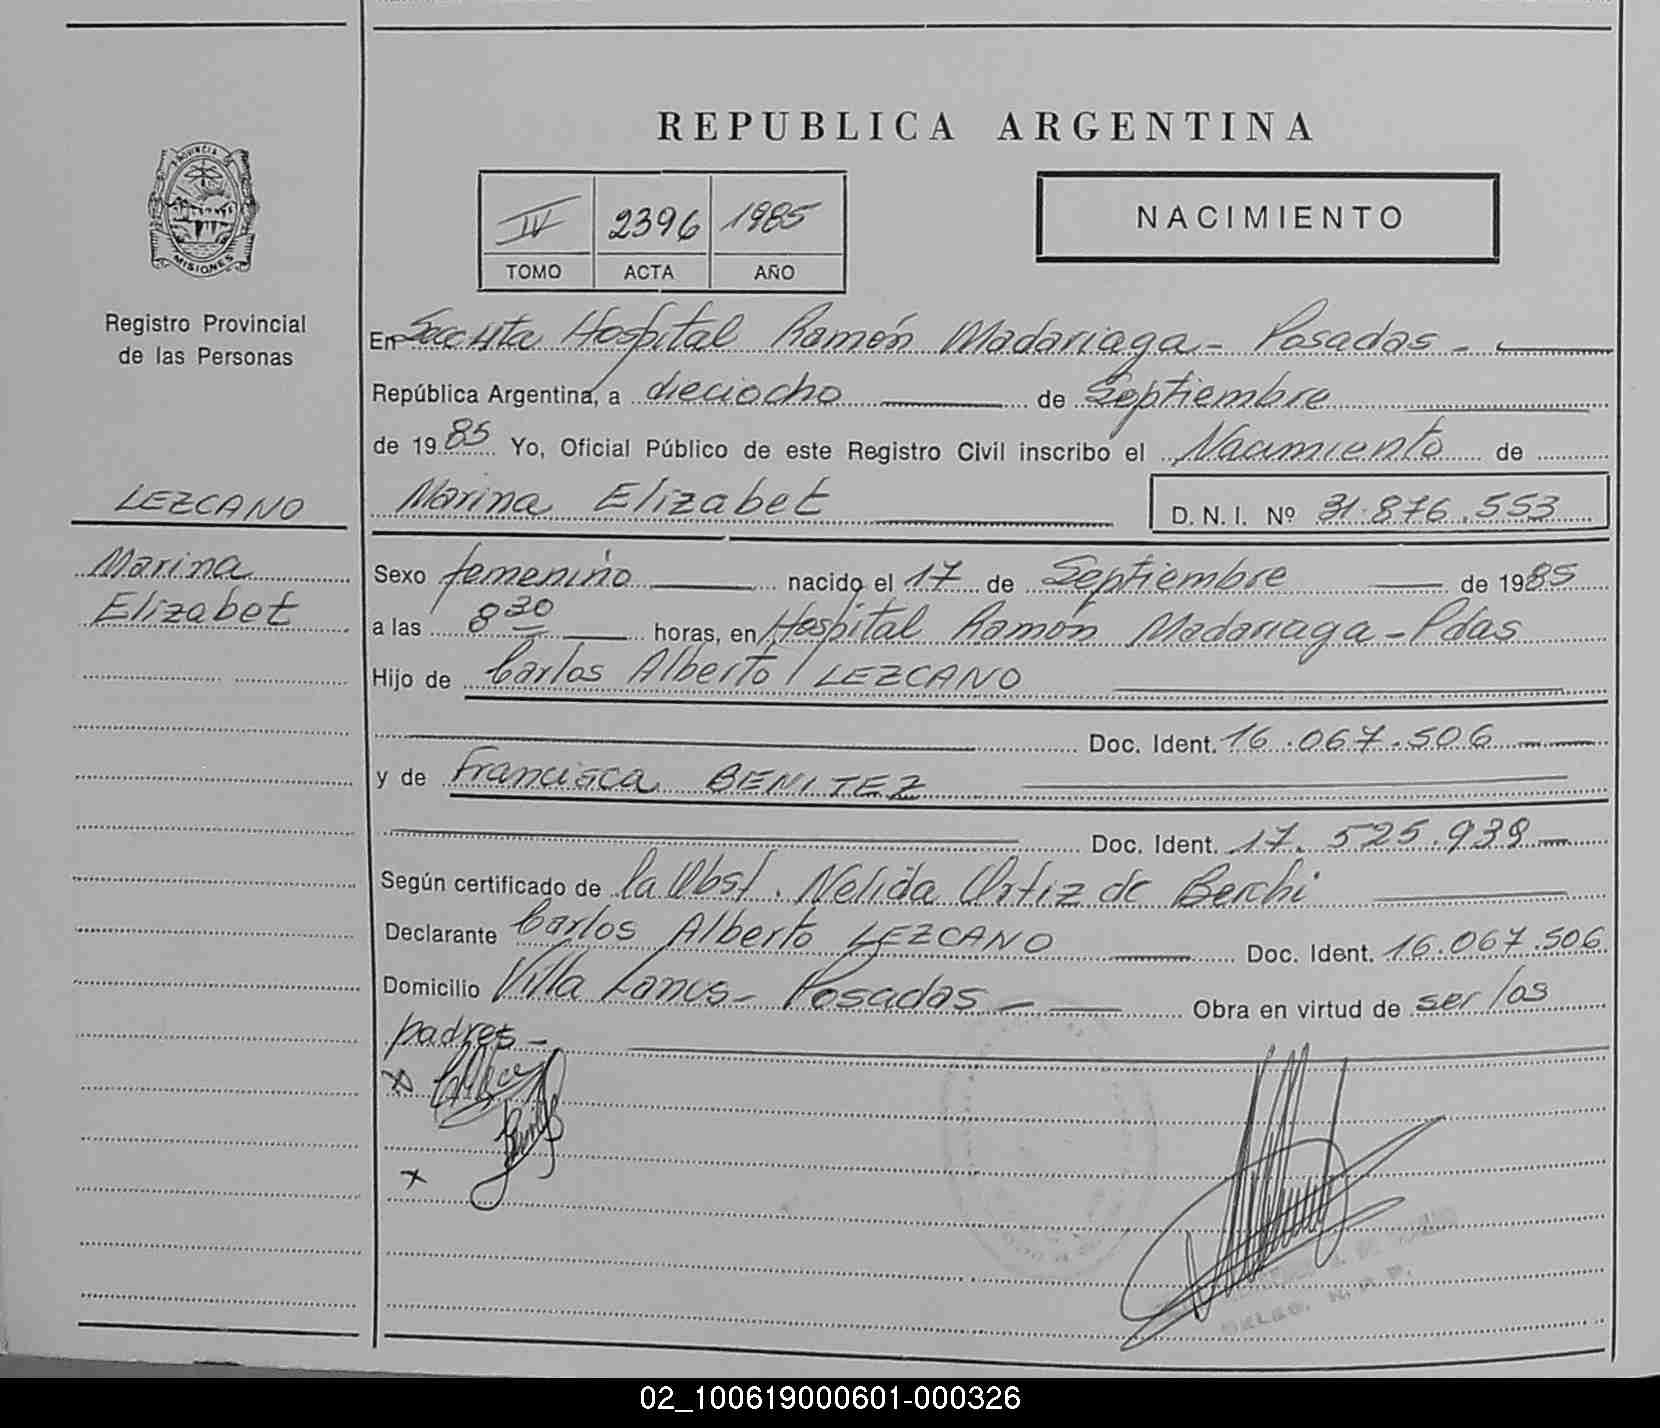 REPUBLICA ARGENTINA
PROVINCIA DE MISIONES
Registro Provincial
de las Personas
IV 2396 1985
TOMO ACTA AÑO
NACIMIENTO
En Hospital Ramón Madariaga - Posadas -
República Argentina, a dieciocho de Septiembre
de 1985 Yo, Oficial Público de este Registro Civil inscribo el Nacimiento de
LEZCANO
Marina
Elizabet
Marina Elizabet D. N. I. Nº 31.876.553
Sexo femenino nacido el 17 de Septiembre de 1985
a las 8 30 horas, en Hospital Ramón Madariaga - Pdas
Hijo de Carlos Alberto LEZCANO
Doc. Ident. 16.067.506
y de Francisca BENITEZ
Doc. Ident. 17.525.939
Según certificado de la Obst. Nélida Ortiz de Berchi
Declarante Carlos Alberto LEZCANO Doc. Ident. 16.067.506
Domicilio Villa Lanus - Posadas - Obra en virtud de ser los
padres -
02_100619000601-000326